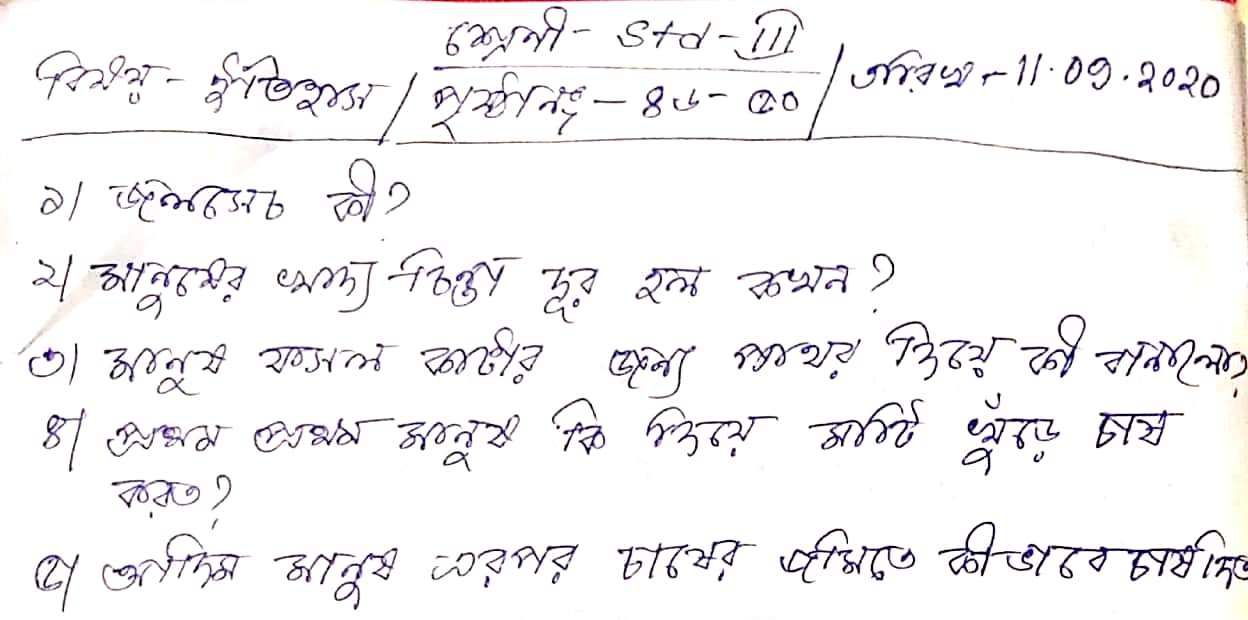 শ্রেণী - Std - III
বিষয় - ইতিহাস / পৃষ্ঠা নং - ৪৬ - ৫০ / তারিখ - 11.09.2020
১| জলসেচ কী?
২| মানুষের খাদ্য চিন্তা দূর হল কখন?
৩| মানুষ ফসল কাটার জন্য পাথর দিয়ে কী বানালো?
৪| প্রথম প্রথম মানুষ কি দিয়ে মাটি খুঁড়ে চাষ
করত?
৫| আদিম মানুষ এরপর চাষের জমিতে কীভাবে চাষ দিত